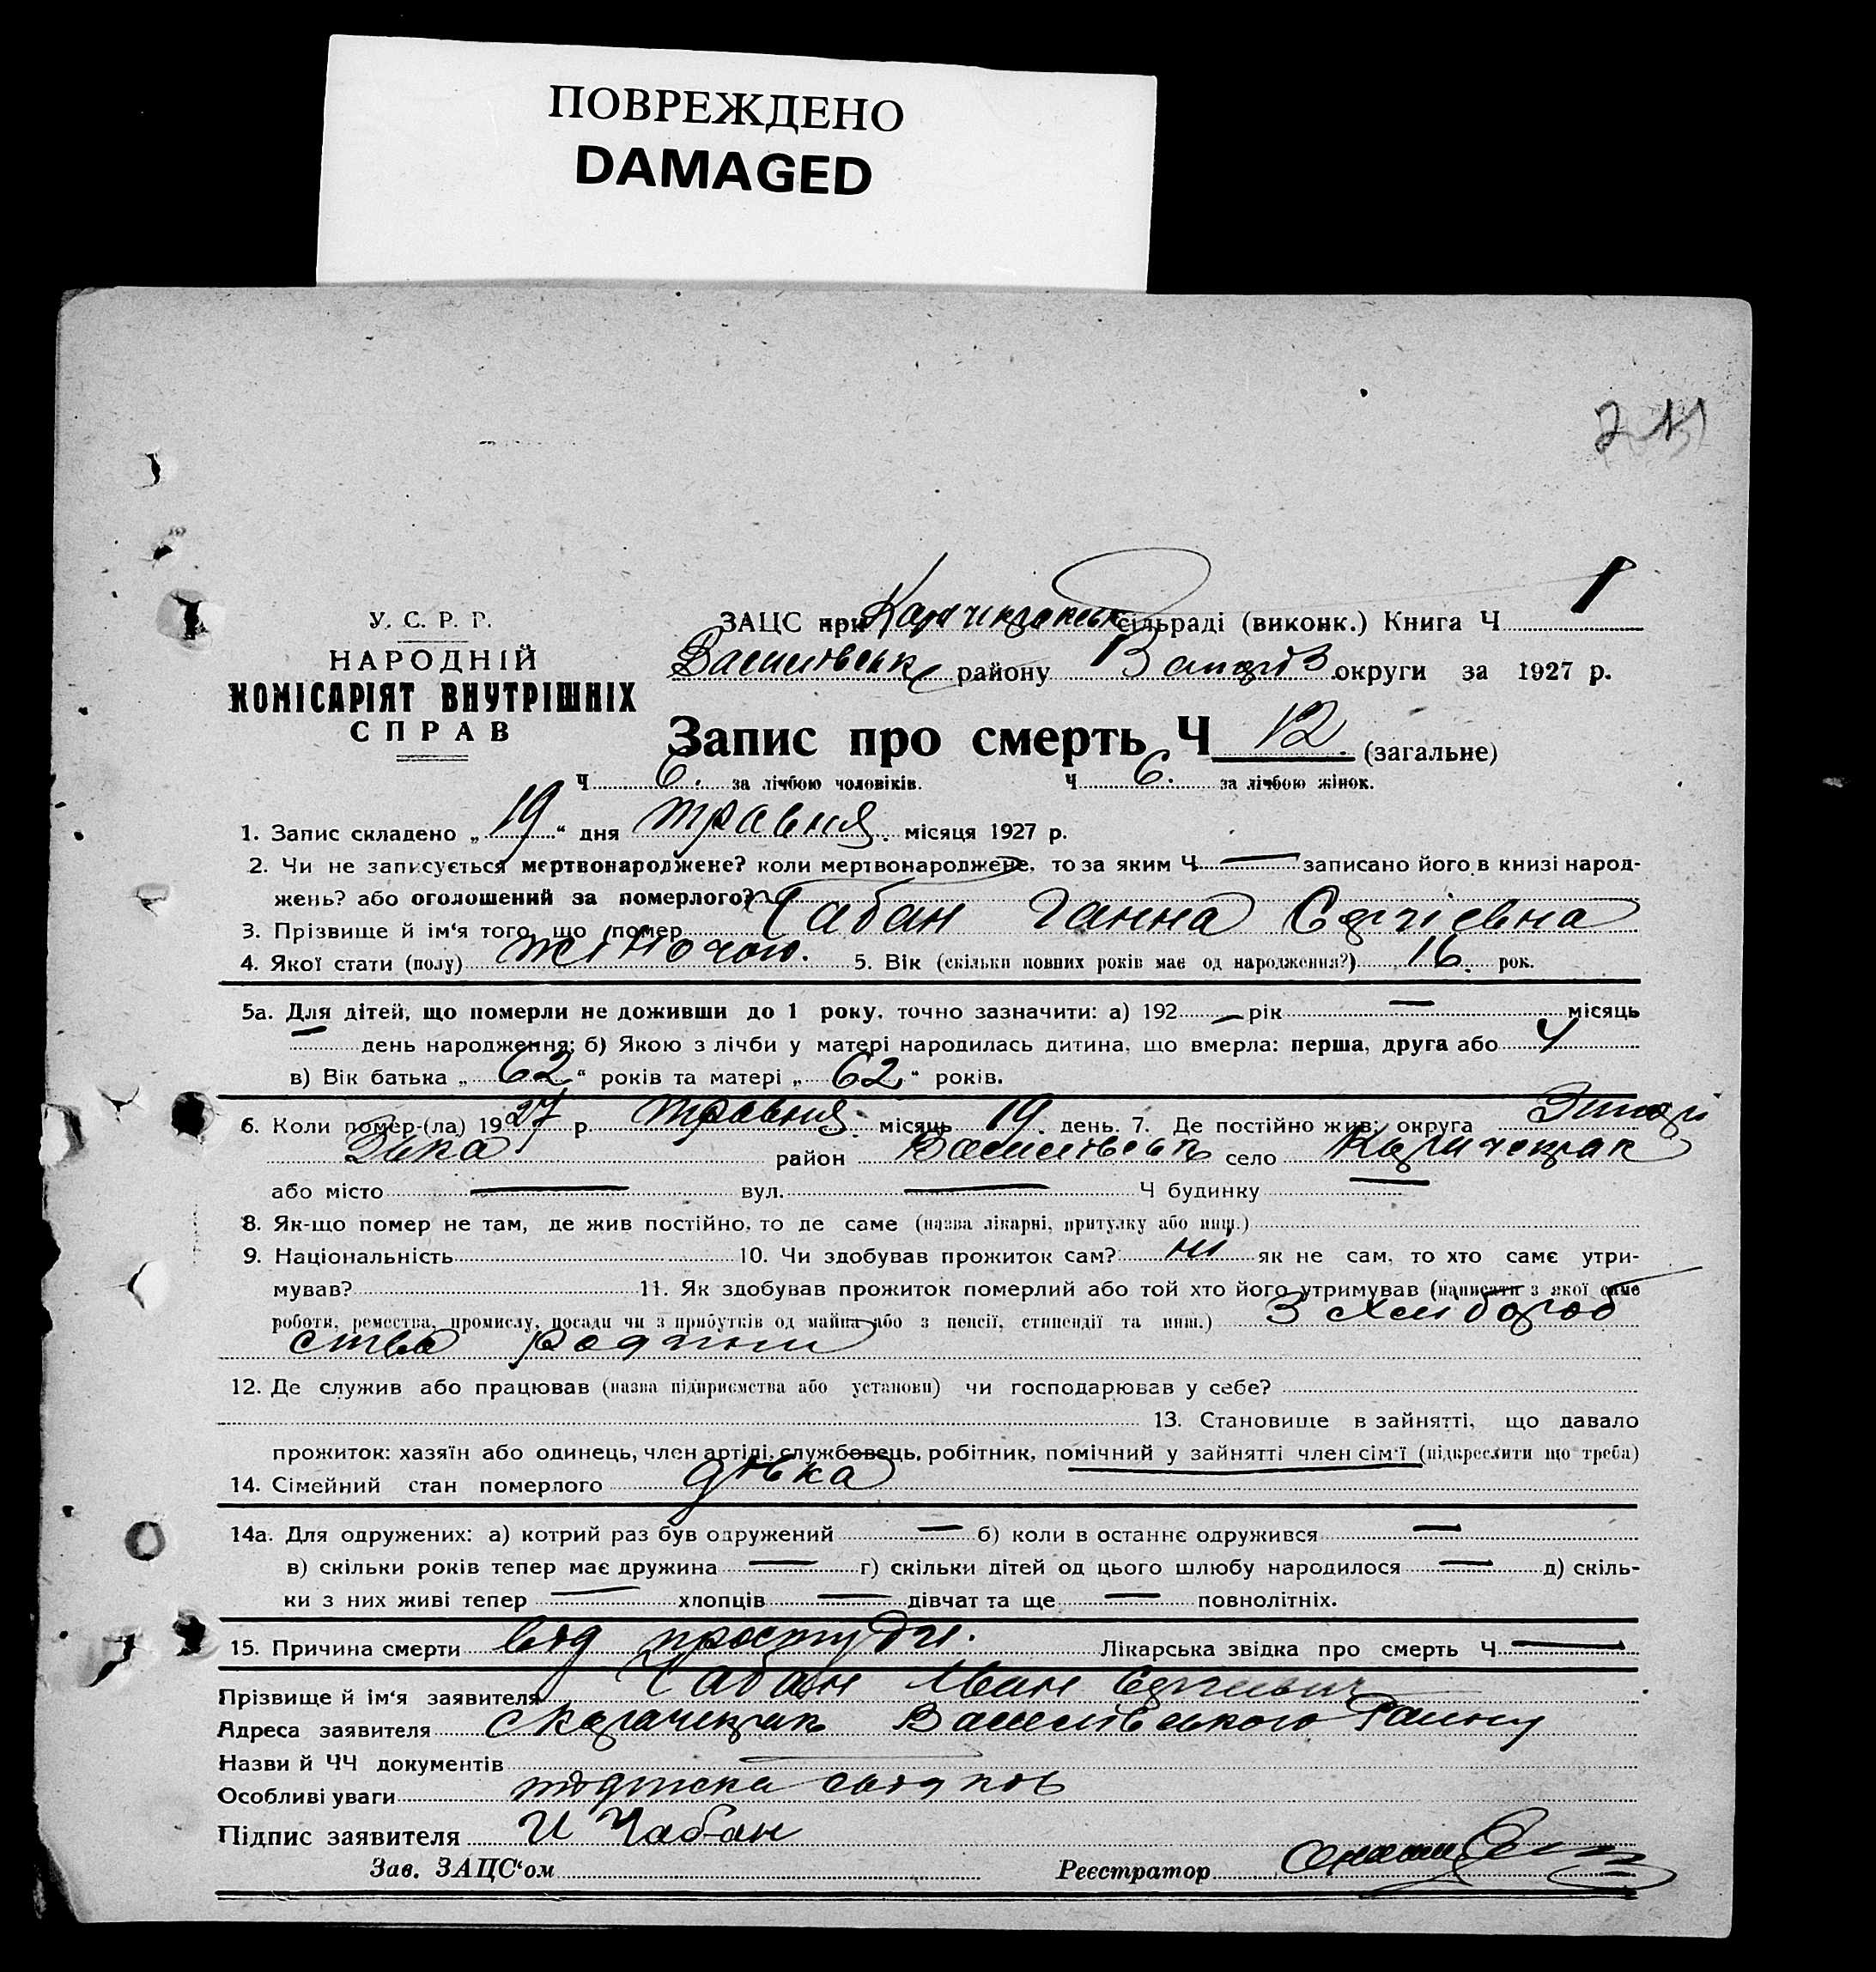 ПОВРЕЖДЕНО
DAMAGED
У. С. Р. Р.
НАРОДНІЙ
КОМІСАРІЯТ ВНУТРІШНІХ
СПРАВ
ЗАЦС при сільраді (виконк.) Книга Ч 1
Василівськ району Запоріз округи за 1927 р.
Запис про смерть Ч 12. (загальне)
Ч 6. за лічбою чоловіків. Ч 6. за лічбою жінок.
1. Запис складено „19“ дня травня місяця 1927 р.
2. Чи не записується мертвонароджене? коли мертвонароджене, то за яким Ч — записано його в книзі народ-
жень? або оголошений за померлого?
3. Прізвище й ім‘я того, що помер Чабан Ганна Сергієвна
4. Якої стати (полу) жіночою. 5. Вік (скільки повних років має од народження?) 16. рок.
5а. Для дітей, що померли не доживши до 1 року, точно зазначити: а) 192 — рік — місяць
— день народження; б) Якою з лічби у матері народилась дитина, що вмерла: перша, друга або 4
в) Вік батька „62“ років та матері „62“ років.
6. Коли помер-(ла) 1927 р. травня місяць 19 день. 7. Де постійно жив: округа Запорі
зька район Василівськ село
або місто — вул. — Ч будинку —
8. Як-що помер не там, де жив постійно, то де саме (назва лікарні, притулку або инш.)
9. Національність 10. Чи здобував прожиток сам? ні як не сам, то хто саме утри-
мував? 11. Як здобував прожиток померлий або той хто його утримував (написати з якої саме
роботи, ремества, промислу, посади чи з прибутків од майна або з пенсії, стипендії та инш.) З хлібороб
ства родини
12. Де служив або працював (назва підприємства або установи) чи господарював у себе?
13. Становище в зайнятті, що давало
прожиток: хазяїн або одинець, член артілі, службовець, робітник, помічний у зайнятті член сім‘ї (підкреслити що треба)
14. Сімейний стан померлого дівка
14а. Для одружених: а) котрий раз був одружений — б) коли в останнє одружився —
в) скільки років тепер має дружина — г) скільки дітей од цього шлюбу народилося — д) скіль-
ки з них живі тепер — хлопців — дівчат та ще — повнолітніх.
15. Причина смерти від простуди. Лікарська звідка про смерть Ч —
Прізвище й ім‘я заявителя Чабан Иван Сергиевич
Адреса заявителя с Василівського Району
Назви й ЧЧ документів —
Особливі уваги підписка свідків
Підпис заявителя И Чабан
Зав. ЗАЦС‘ом Реєстратор